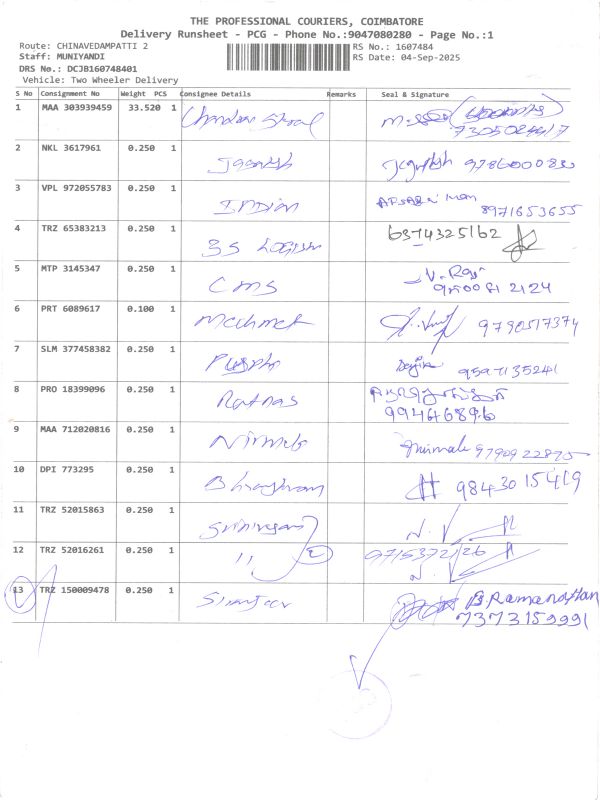 THE PROFESSIONAL COURIERS, COIMBATORE
Delivery Runsheet - PCG - Phone No.:9047080280 - Page No.:1
Route: CHINAVEDAMPATTI 2 RS No.: 1607484
Staff: MUNIYANDI RS Date: 04-Sep-2025
DRS No.: DCJB160748401
Vehicle: Two Wheeler Delivery
S No Consignment No Weight PCS Consignee Details Remarks Seal & Signature
1 MAA 303939459 33.520 1
7305084417
2 NKL 3617961 0.250 1 Jagadish
3 VPL 972055783 0.250 1 Indian
8971653655
4 TRZ 65383213 0.250 1 3S Logism 6374325162
5 MTP 3145347 0.250 1 CMS V. Raji
6 PRT 6089617 0.100 1 9790517374
7 SLM 377458382 0.250 1 Pushpa 9597135241
8 PRO 18399096 0.250 1 Ratnas
9 MAA 712020816 0.250 1 Nirmala Nirmala 9790922875
10 DPI 773295 0.250 1 9843015419
11 TRZ 52015863 0.250 1 Srinivasan N. V
12 TRZ 52016261 0.250 1 11 2 9715372126
N. V
13 TRZ 150009478 0.250 1 B Ramanathan
7373159991